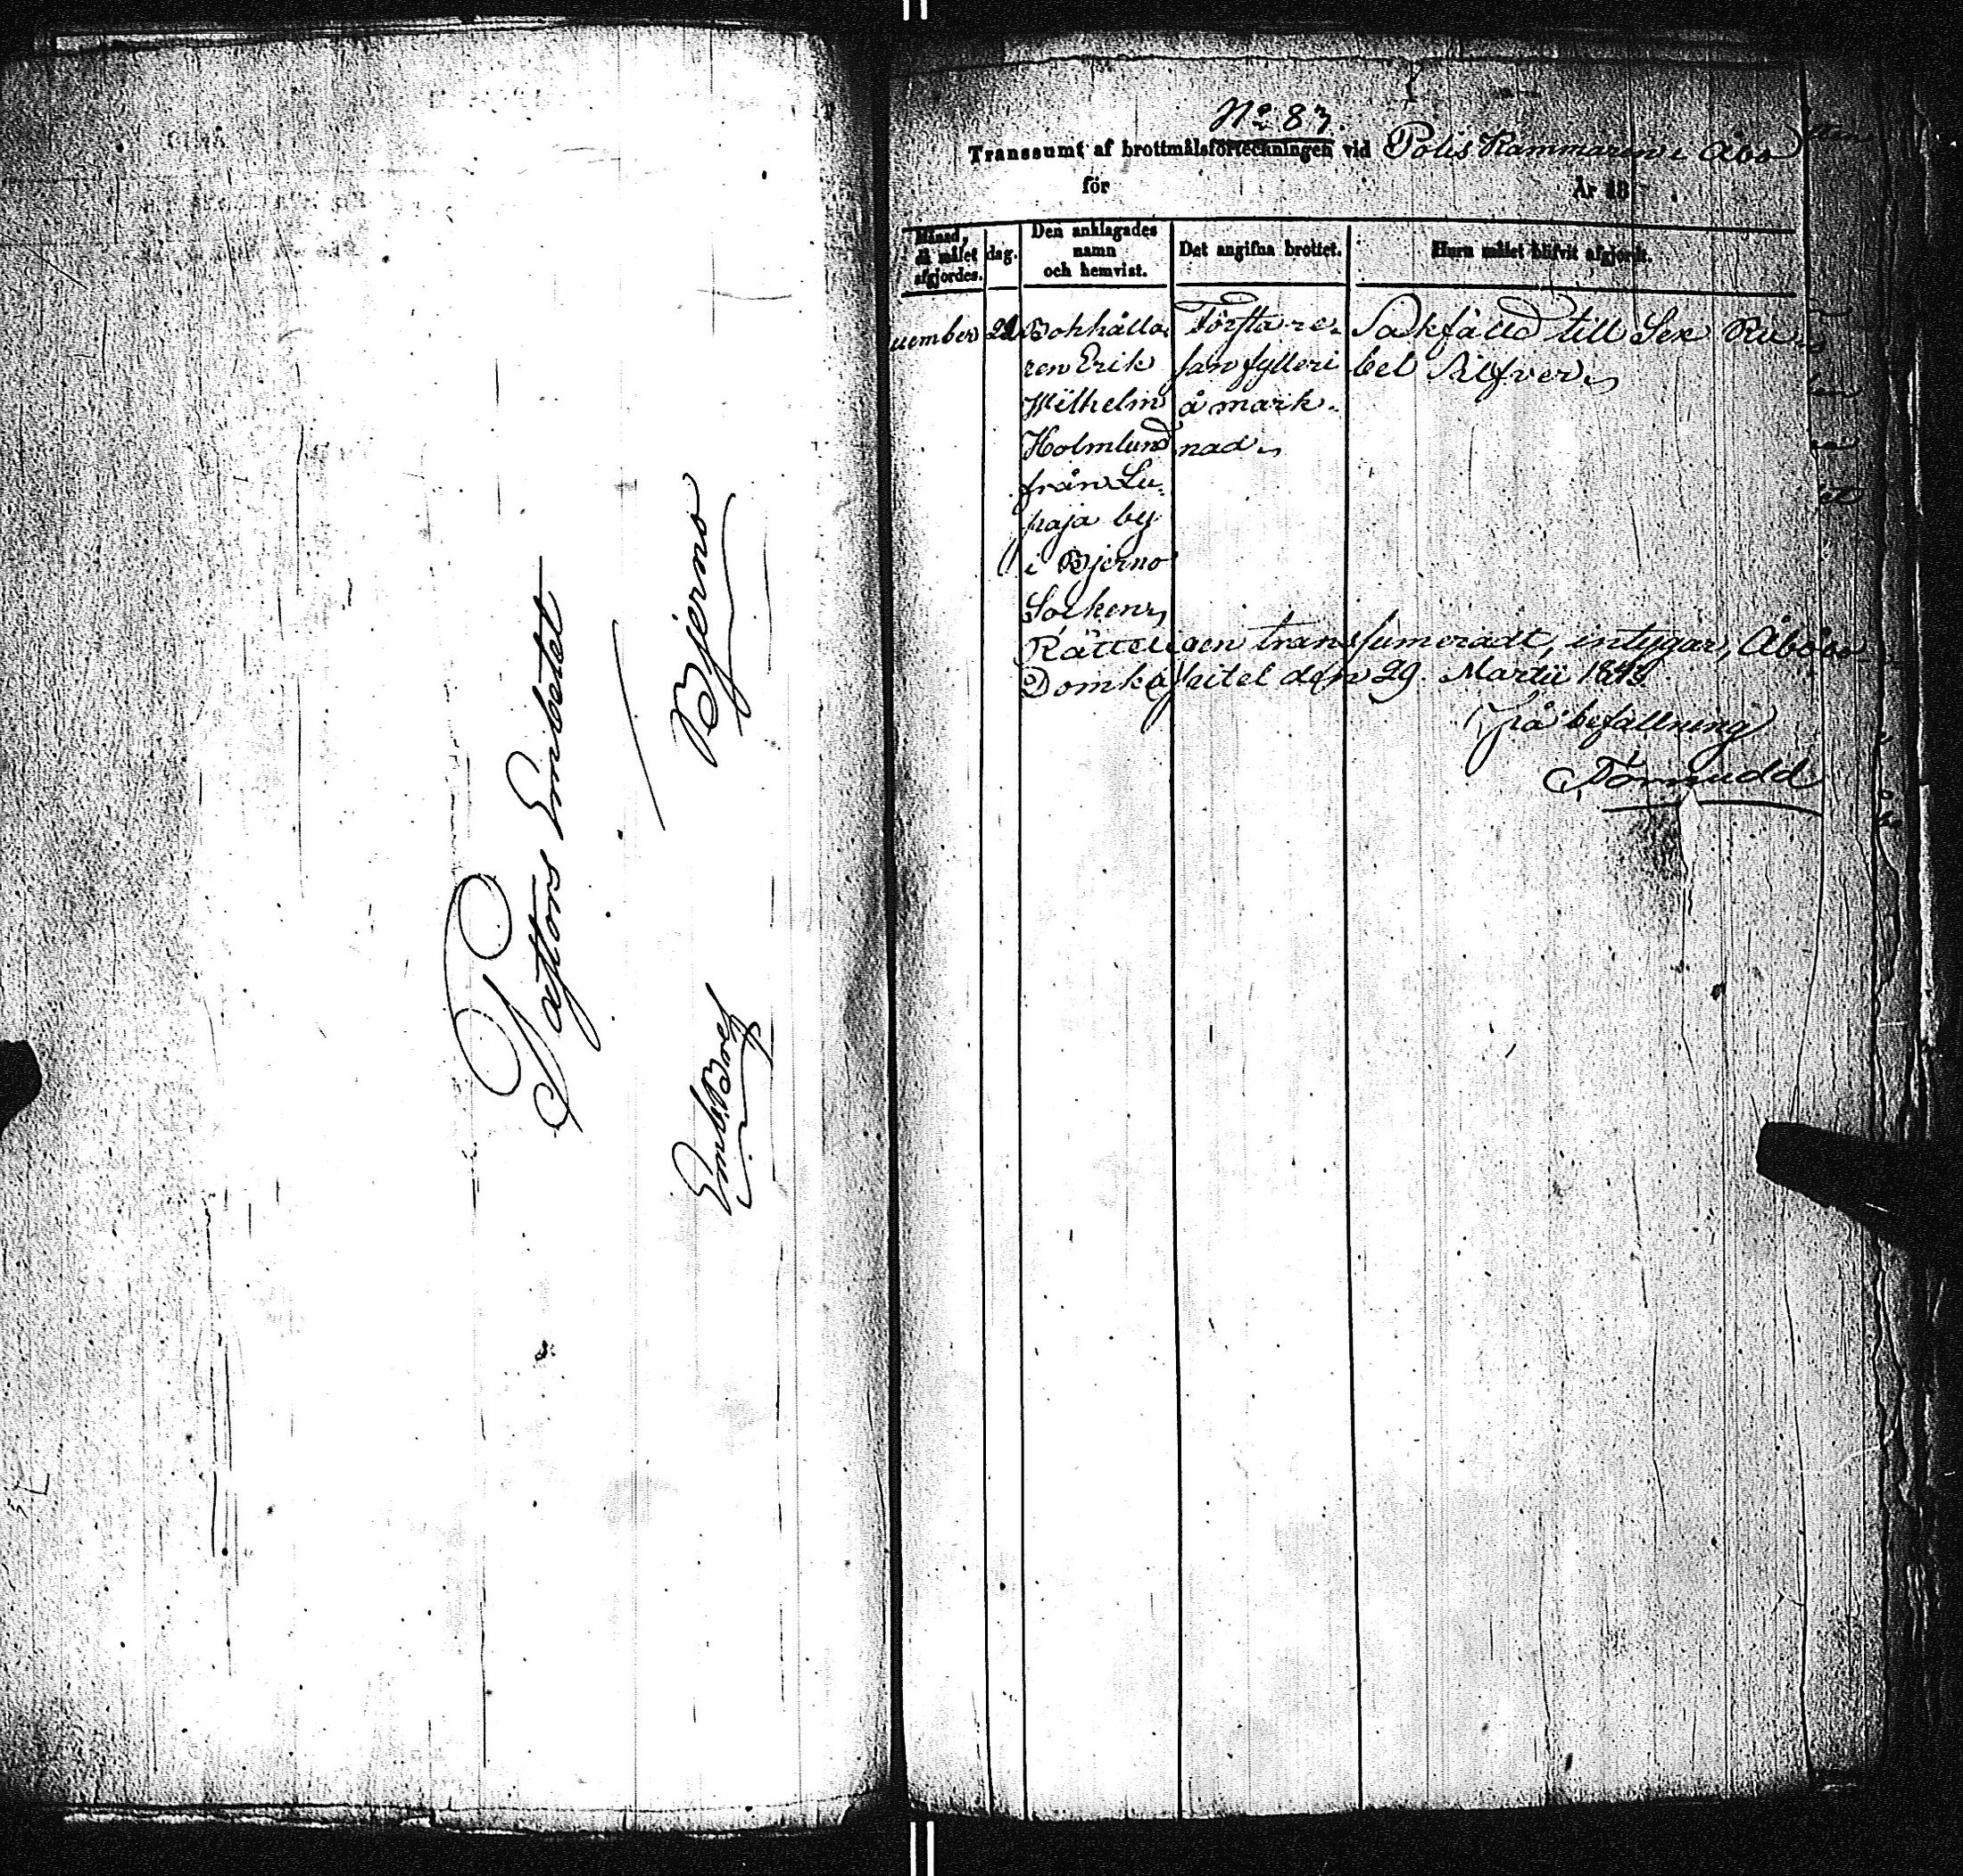 Pastors Embetet
Bjerno
Emb. Bref
No 87.
Transsumt af brottmålsförteckningen vid Polis Kammaren i Åbo
för År 18
Månad, då målet afgjordes.
dag.
Den anklagades namn och hemvist.
Det angifna brottet.
Huru målet blifvit afgjordt.
Bokhålla
ren Erik
Wilhelm
Holmlund
från Lu-
paja by
i Bjerno
Socken
Första re-
san fylleri
å mark-
nad
Sakfälld till Sex Ru
bel Silfver
Rätteligen transsumeradt, intygar, Åbo
Domkapitel den 29. Martii
På befallning
Törnudd